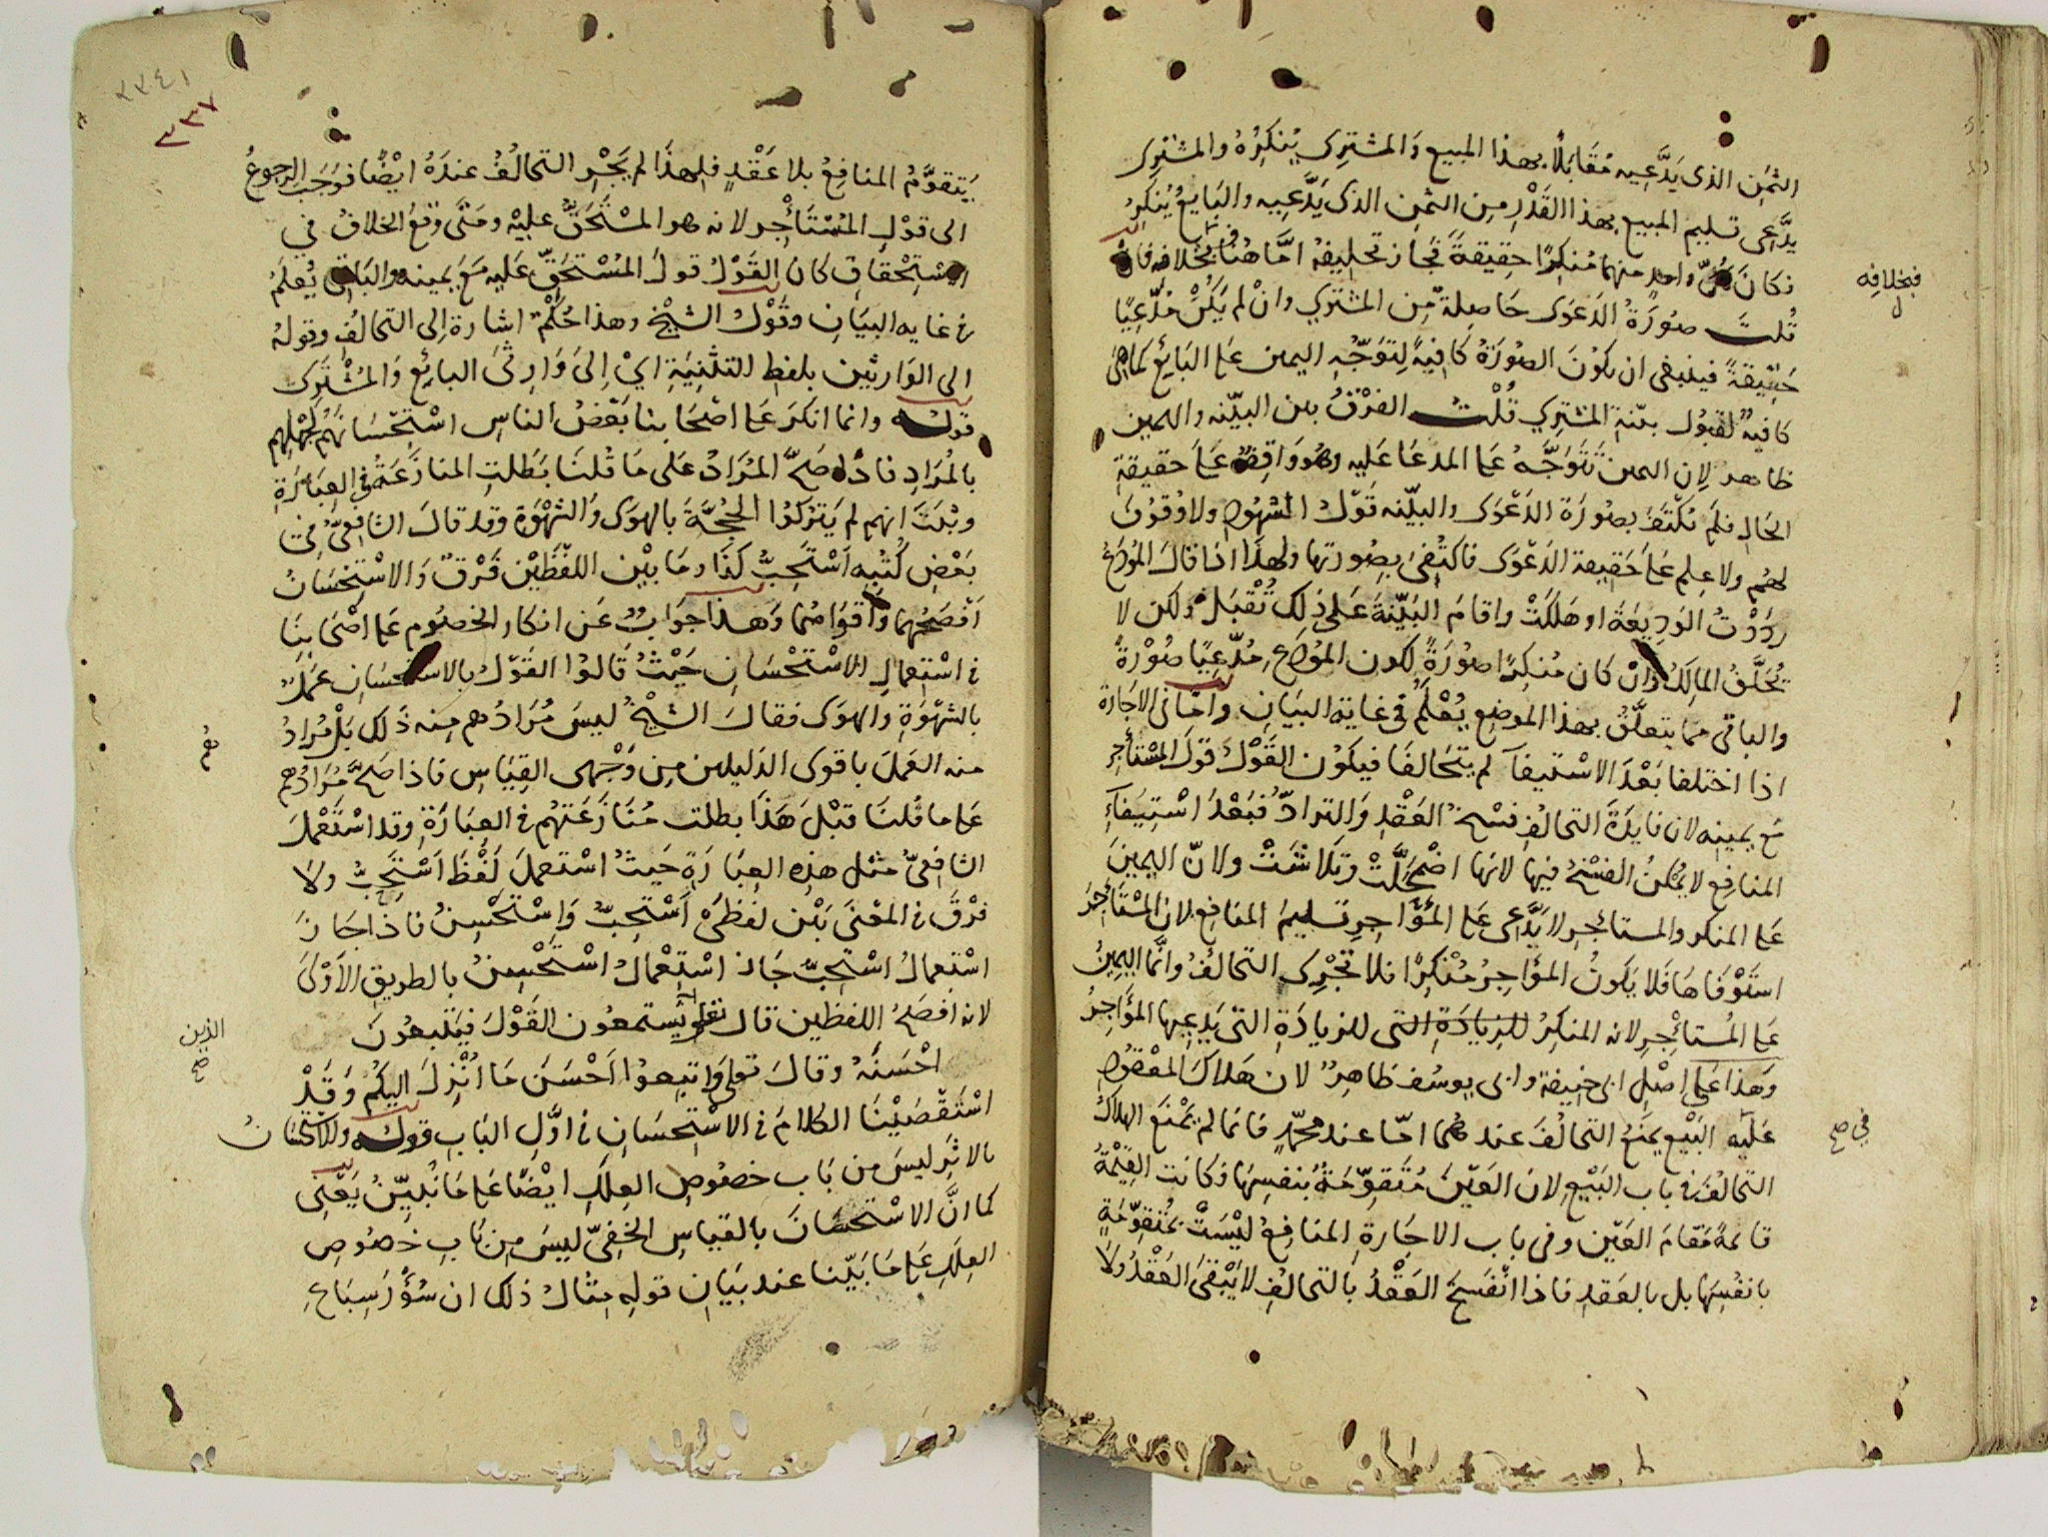 الثمن الذى يَدَّعيه مُقَابَلًا بهذا المبيع وَالمشترِى يُنكِرُهُ والمشترِى
يدَّعِى تسليم المبيع بهذا القَدْرِ مِن الثمن الذى يَدَّعِيه والبَايعُ يُنكِرُ
فكانَ كلّ واحد منهما مُنكِرًا حقيقةً فجاز تحليفهُ امَّا هُنا بخلافه فان
فبخلافه
قُلتَ صُورَةُ الدَعْوَى حَاصِلةٌ مِن المشتري وانْ لم يَكُنْ مُدَّعِيًا
حَقِيقةً فينبغى ان يكونَ الصُورَةُ كافِيَةً لِتَوَجُّهِ اليمين عَلَى البَائِعِ كماهى
كافيةٌ لقَبُول بيّنةِ المشترِي قُلْتُ الفرْقُ بين البيّنه واليمين
ظاهر لِان اليمينَ تَتَوَجَّهُ عَلى المدعَا عَليه وهو واقِفٌ عَلى حَقيقةِ
الحَالِ فلَم يُكْتَفَ بصُورَة الدَعْوَى والبيّنه قَوْلُ الشهُودِ ولا وُقوفَ
لهُم ولا عِلم عَلَى حَقِيقة الدَعْوَى فاكتُفِىَ بِصُورَتِها ولهذا اذا قالَ المُودَعُ
رَدَدْتُ الوَدِيعَةَ او هَلَكَتْ واقامَ البَيِّنةَ عَلى ذلك تُقْبَل ولكن لا
يُحَلَّفُ المالِكُ وَانْ كان مُنكِرًا صُورَةً لكون المُودَعِ مُدَّعِيًا صُوْرَةً
والباقى مما يتعلَّقُ بهذا الموضع يُعْلَمُ فى غاية البَيَانِ واما فى الاِجَارة
اذا اختلفا بَعْدَ الاسْتيفآءِ لم يتحَالفَا فيكون القَوْلُ قَوْلَ المُسْتأجِر
مَع يمينِه لان فايدَةَ التحالُفِ فسْخُ العَقْدِ وَالترادُّ فبَعْدَ اسْتِيفَآءِ
المنافِع لا يُمكنُ الفَسْخُ فيها لانها اضْمَحَلَّتْ وَتَلَاشَتْ ولانّ اليمينَ
عَلى المنكر والمستائجر لا يَدَّعِى عَلى المُؤَاجِرِ تَسليمَ المنَافع لان المُسْتَأجِرَ
اسْتَوْفَاهَا فَلا يَكونُ المؤَاجِرُ مُنْكِرًا فلا تَجْرِى التحالُفُ وانَّما اليمِينُ
عَلى المُسْتائجِر لانه المنكِرُ للزيادَةِ التى للزيادَةِ التى يَدعِيها المؤَاجِرُ
وَهذا عَلى اصْلِ ابى حَنِيفةَ وابى يوسُف ظاهِرٌ لان هَلاكَ المعْقودِ
عَليْهِ البَيْع يمنَعُ التحالُفَ عندهُما امّا عند محمّدٍ فانما لم يَمْنَع الهلاكُ
في صح
التحالُفَ فى باب البَيْع لان العَيْنَ مُتَقَوِّمَةٌ بنفسِهَا فكانت القِيْمَةُ
قايمةً مَقامَ العَيْن وفى باب الاجَارة المنافِعُ ليْسَتْ بمُتَقوِّمَةٍ
بانفُسِهَا بل بالعَقدِ فاذا انْفَسَخَ العَقْدُ بالتحالُفِ لا يَبْقىَ العَقْدُ ولا
٢٣٤١
٣٣٧
يَتقوَّمُ المنافِعُ بلا عَقْدٍ فلهذَا لم يَجْرِ التحالُفُ عندَهُ ايْضًا فوَجَبَ الرجوعُ
الى قوْلِ المُسْتَأجِر لانه هو المسْتَحَقُّ عليْه ومَتَى وقعَ الخلافُ في
الاستِحْقاقِ كانَ القَوْلُ قولَ المُسْتحَقِّ عَليه مَعَ يمينه والبَاقى يُعلَمُ
فى غايه البيَانِ وقَوْلُ الشيْخ وهذا حُكْمٌ اشارة اِلى التحالُفِ وقولهُ
الى الوَارثين بلفظ التَثْنِيَةِ اىْ اِلىَ وَارِثىَ البائِع وَالمُشترِى
قوله وانما انكرَ عَلى اصْحَابنا بَعْضُ الناسِ اسْتِحْسَانَهُم لِجهْلِهِم
بالمُرَادِ فاذا صَحَّ المُرَادُ عَلى مَا قُلنَا بَطَلتِ المنازَعَةُ فى العِبَارَةِ
وثبَتَ انهم لم يَتركوُا الحُجَّةَ بالهوَى وَالشهْوَة وقد قالَ الشافعىُّ فى
بَعْضِ كُتُبِه اَسْتَحِبُّ كذَا وما بيْن اللفْظَيْن فَرْقٌ وَالاسْتِحْسَانُ
اَفصَحُهما وَاَقوَاهُما وَهذا جوَابٌ عَن انكار الخصُومِ عَلى اصْحابنَا
فى اسْتِعمالِ الاسْتحْسَانِ حَيْثُ قَالوُا القَوْلُ بالاستحسَان عَمَلٌ
بالشهْوَةِ والهوَى فقالَ الشيْخُ ليسَ مُرَادُهم مِنه ذَلك بَلْ مُرادُ
هُم
منه العَمَلَ باقوى الدَليلين مِن وَجْهى القِيَاسِ فاذا صَحَّ مُرَادُهم
عَلى ما قُلنَا قبْلَ هَذا بطلت مُنازَعَتهُم فى العِبَارَةِ وقد اسْتَعْمَلَ
الشافِعىُّ مثل هذِهِ العِبَارَةِ حَيثُ اسْتعملَ لَفْظَ اَسْتَحِبُّ ولا
فرْقَ فى المعْنىَ بَيْن لفظىْ اَسْتحِبُّ وَاسْتَحْسِنُ فاذا جَازَ
اسْتِعمالُ اسْتحِبُّ جَازَ اسْتِعْمالُ اسْتَحْسِنُ بالطريقِ الاَوْلىَ
لانه افصَحُ اللفظين قال تعالى يَستمعُون القَوْلَ فيَتّبِعوُنَ
الذين
صح
احْسَنَهُ وقالَ تعلى وَاتبِعوُا اَحْسَنَ مَا اُنْزِلَ اليكُم وَقَدْ
اسْتَقْصَيْنَا الكلامَ فى الاسْتِحسَانِ فى اوَّلِ البَابِ قوله والاستحسَانُ
بالاثرِ ليسَ من بَاب خصُوصِ العِلَلِ ايْضًا عَلى مَا نُبَيِّنُ يَعْنى
كما انَّ الاسْتحسَانَ بالقيَاسِ الخفىِّ ليسَ مِن بَابِ خصُوصِ
العِلَلِ عَلى مَا بَيّنا عند بَيَانِ قولِهِ مِثالُ ذلكَ ان سُؤْرَ سِبَاعِ